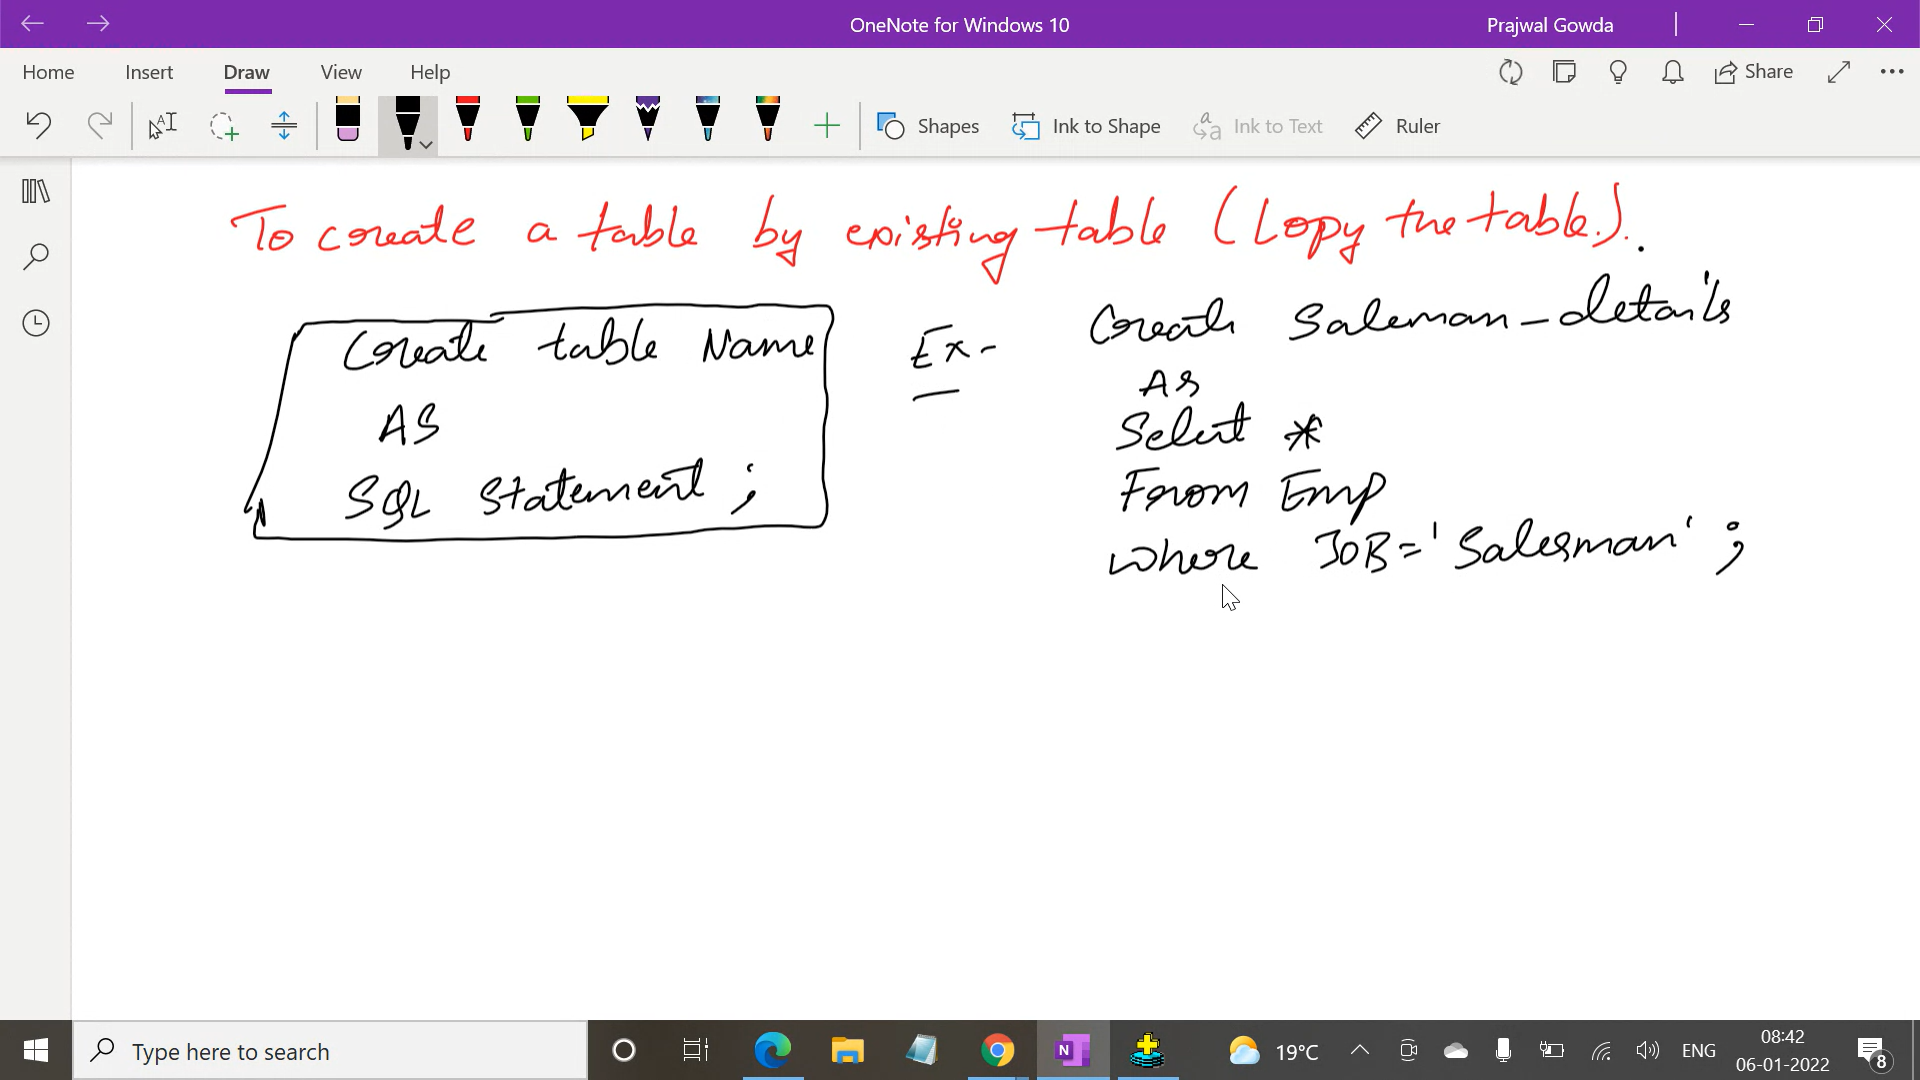 OneNote for Windows 10
Prajwal Gowda
Home Insert Draw View Help
Share
Shapes Ink to Shape Ink to Text Ruler
To create a table by existing table (Copy the table.).
Create table Name
AS
SQL Statement ;
Ex-
Create Saleman_details
As
Select *
From Emp
where JOB='Salesman' ;
Type here to search
19°C
ENG
08:42
06-01-2022
8